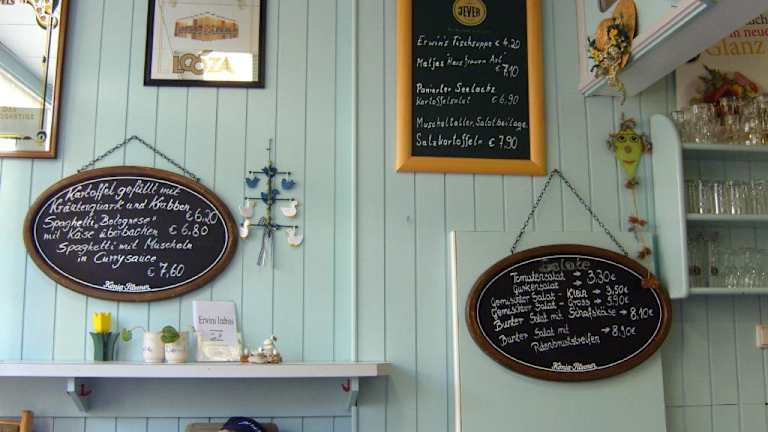 LOOZA
JEVER
Erwin's Fischsuppe € 4.20
Matjes "Hausfrauen Art"
€ 7.10
Panierter Seelachs
Kartoffelsalat € 6.90
Muschelteller, Salatbeilage,
Salzkartoffeln € 7.90
Glanz
Kartoffel gefüllt mit
Kräuterquark und Krabben
€ 6.20
Spaghetti „Bolognese"
mit Käse überbacken € 6.80
Spaghetti mit Muscheln
in Currysauce
€ 7,60
König Pilsener
Salate
Tomatensalat → 3,30€
Gurkensalat
Gemischter Salat - Klein → 3,50€
Gemischter Salat - Gross → 5,90€
Bunter Salat mit Schafskäse → 8,10€
Bunter Salat mit
Putenbruststreifen → 8,90€
König Pilsener
Erwins Imbiss